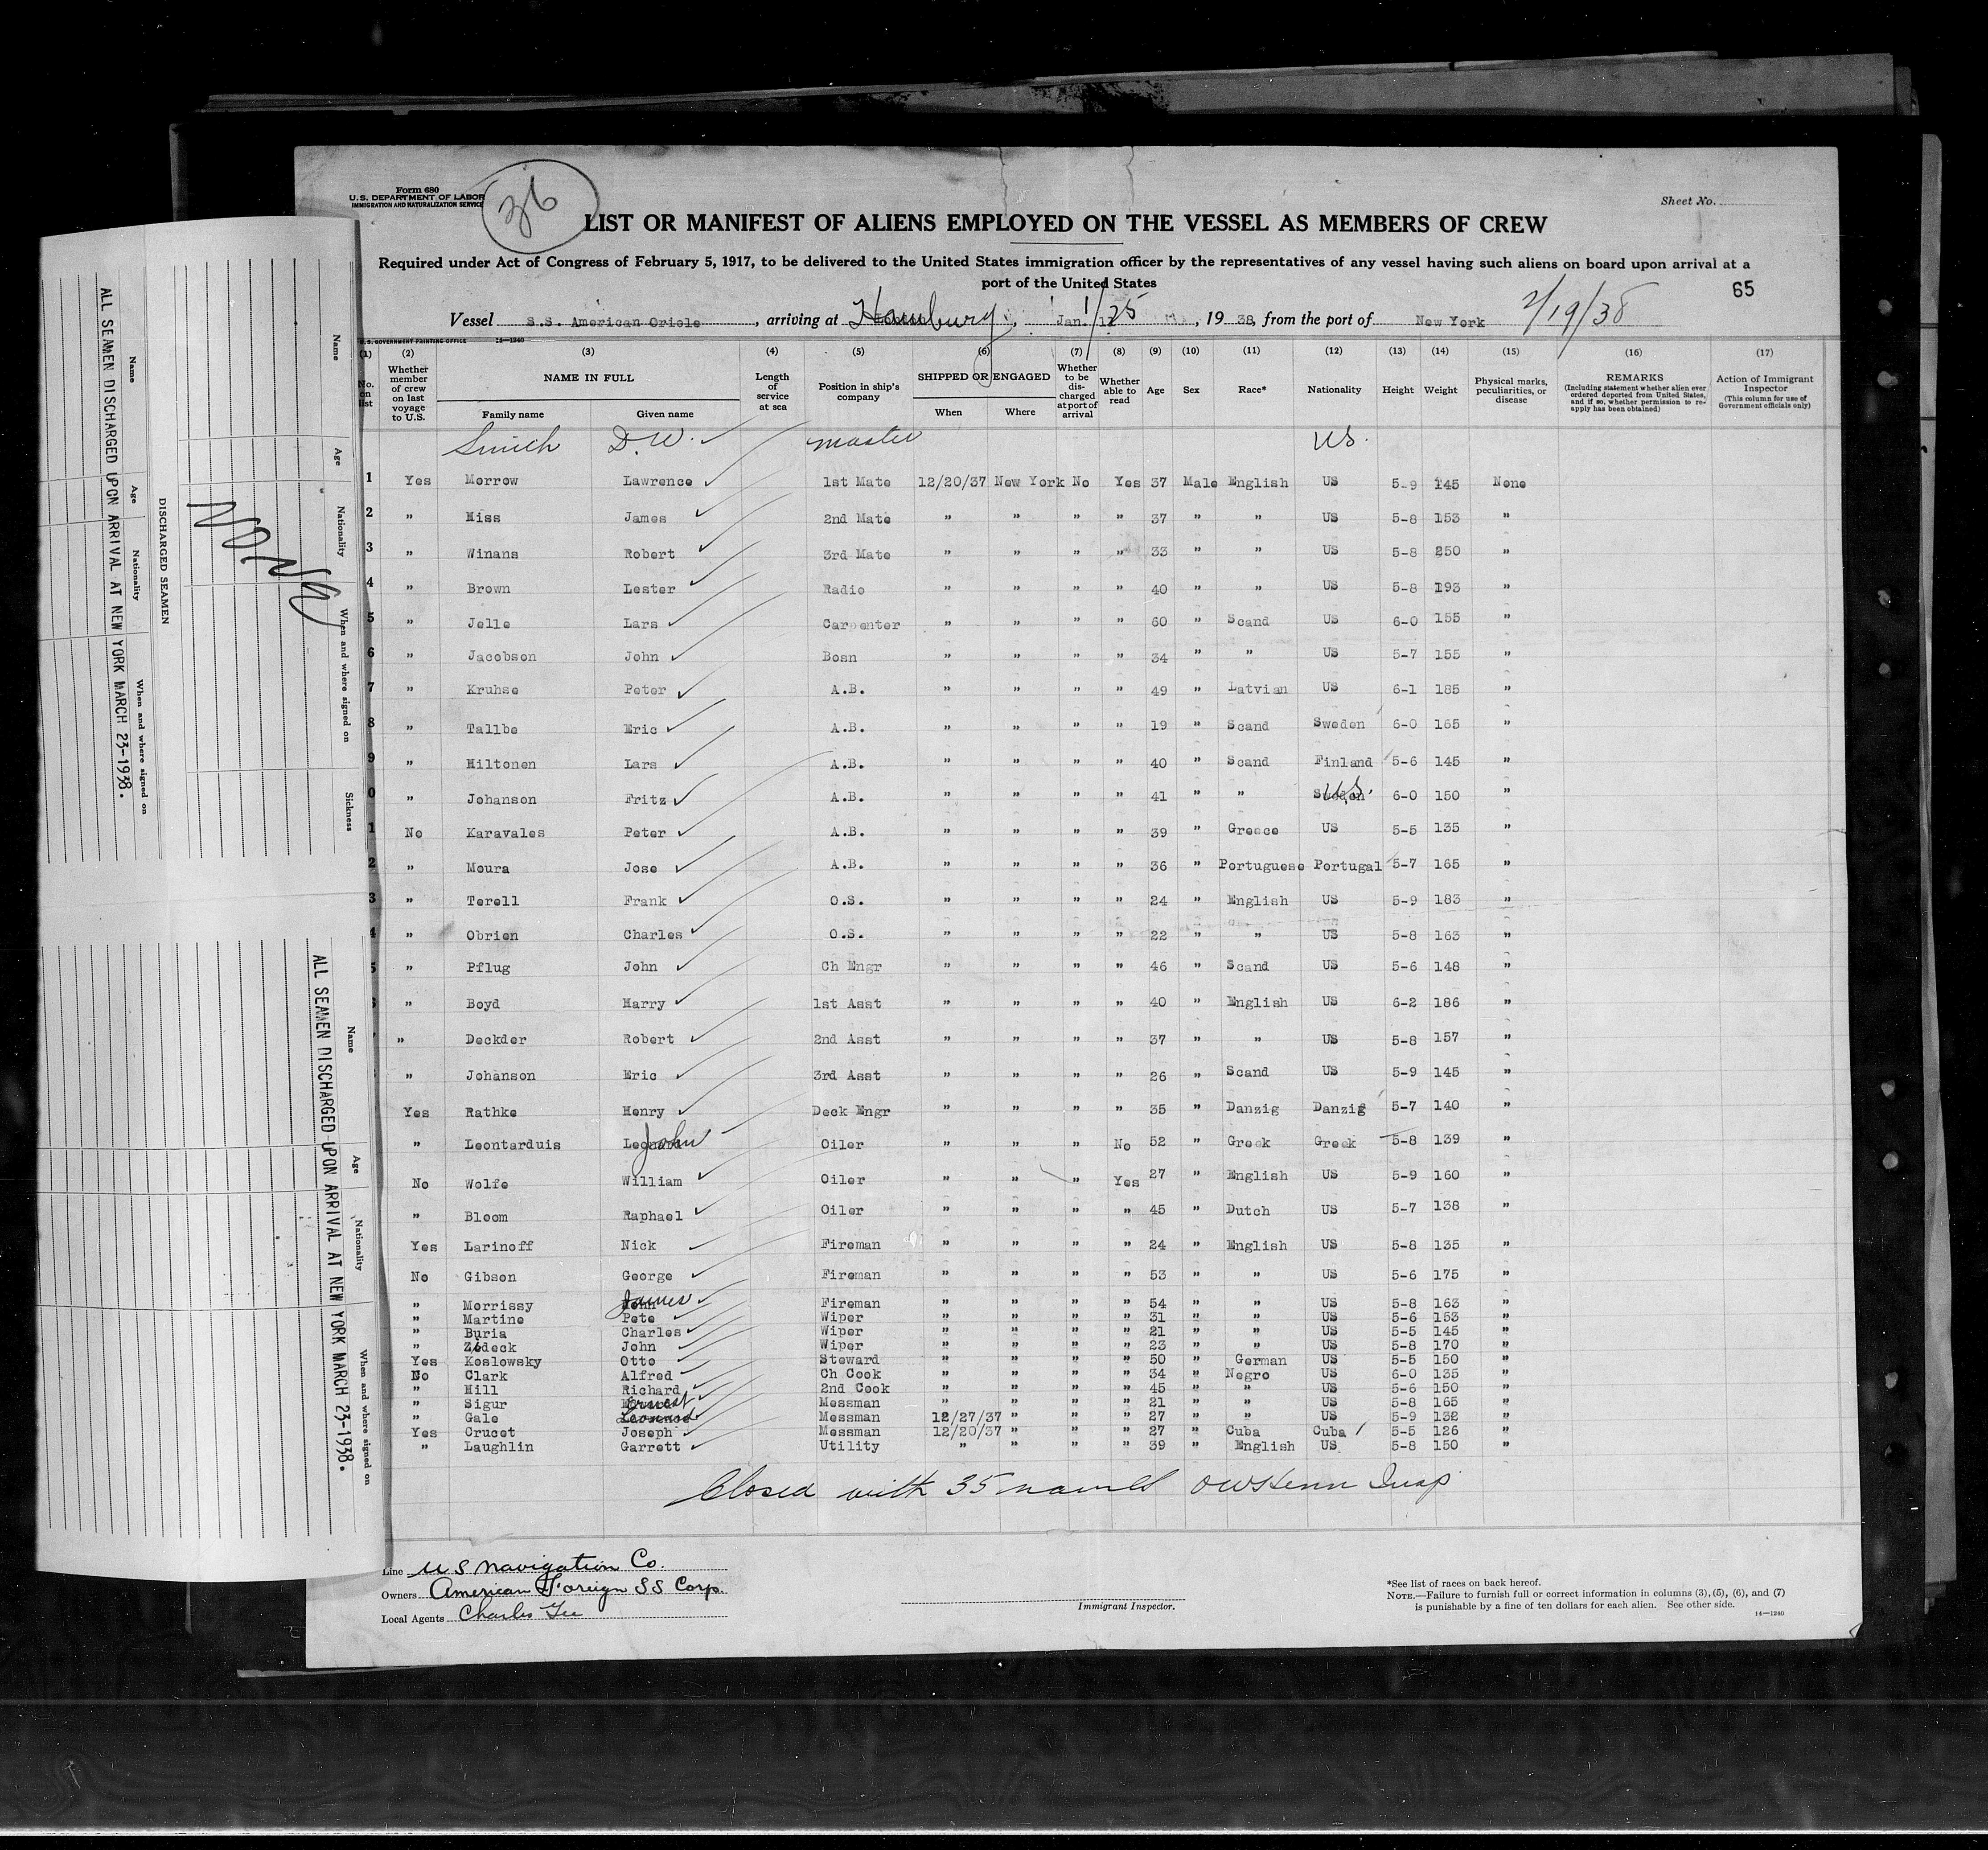 Form 680
U.S. DEPARTMENT OF LABOR
IMMIGRATION AND NATURALIZATION SERVICE
36
Sheet No.
LIST OR MANIFEST OF ALIENS EMPLOYED ON THE VESSEL AS MEMBERS OF CREW
Required under Act of Congress of February 5, 1917, to be delivered to the United States immigration officer by the representatives of any vessel having such aliens on board upon arrival at a
port of the United States
65
Vessel S.S. American Oriole, arriving at Hamburg, Jan. 1/25, 1938, from the port of New York 2/19/38
U.S. GOVERNMENT PRINTING OFFICE 14—1240
(1) (2) (3) (4) (5) (6) (7) (8) (9) (10) (11) (12) (13) (14) (15) (16) (17)
No. on list
Whether member of crew on last voyage to U.S.
NAME IN FULL
Family name Given name
Length of service at sea
Position in ship's company
SHIPPED OR ENGAGED
When Where
Whether to be discharged at port of arrival
Whether able to read
Age Sex Race* Nationality Height Weight
Physical marks, peculiarities, or disease
REMARKS
(Including statement whether alien ever ordered deported from United States, and if so, whether permission to reapply has been obtained)
Action of Immigrant Inspector
(This column for use of Government officials only)
Smith D.W. master US.
1 Yes Morrow Lawrence 1st Mate 12/20/37 New York No Yes 37 Male English US 5-9 145 None
2 " Hiss James 2nd Mate " " " " 37 " " US 5-8 153 "
3 " Winans Robert 3rd Mate " " " " 33 " " US 5-8 250 "
4 " Brown Lester Radio " " " " 40 " " US 5-8 193 "
5 " Jelle Lars Carpenter " " " " 60 " Scand US 6-0 155 "
6 " Jacobson John Bosn " " " " 34 " " US 5-7 155 "
7 " Kruhse Peter A.B. " " " " 49 " Latvian US 6-1 185 "
8 " Tallbe Eric A.B. " " " " 19 " Scand Sweden 6-0 165 "
9 " Hiltonen Lars A.B. " " " " 40 " Scand Finland 5-6 145 "
0 " Johanson Fritz A.B. " " " " 41 " " Sweden U.S. 6-0 150 "
1 No Karavales Peter A.B. " " " " 39 " Greece US 5-5 135 "
2 " Moura Jose A.B. " " " " 36 " Portuguese Portugal 5-7 165 "
3 " Terell Frank O.S. " " " " 24 " English US 5-9 183 "
4 " Obrien Charles O.S. " " " " 22 " " US 5-8 163 "
5 " Pflug John Ch Engr " " " " 46 " Scand US 5-6 148 "
" Boyd Harry 1st Asst " " " " 40 " English US 6-2 186 "
" Deckder Robert 2nd Asst " " " " 37 " " US 5-8 157 "
" Johanson Eric 3rd Asst " " " " 26 " Scand US 5-9 145 "
Yes Rathke Henry Deck Engr " " " " 35 " Danzig Danzig 5-7 140 "
" Leontarduis John Oiler " " " No 52 " Greek Greek 5-8 139 "
No Wolfe William Oiler " " " Yes 27 " English US 5-9 160 "
" Bloom Raphael Oiler " " " " 45 " Dutch US 5-7 138 "
Yes Larinoff Nick Fireman " " " " 24 " English US 5-8 135 "
No Gibson George Fireman " " " " 53 " " US 5-6 175 "
" Morrissy James Fireman " " " " 54 " " US 5-8 163 "
" Martine Pete Wiper " " " " 31 " " US 5-6 153 "
" Buria Charles Wiper " " " " 21 " " US 5-5 145 "
" Zideck John Wiper " " " " 23 " " US 5-8 170 "
Yes Koslowsky Otto Steward " " " " 50 " German US 5-5 150 "
No Clark Alfred Ch Cook " " " " 34 " Negro US 6-0 135 "
" Hill Richard 2nd Cook " " " " 45 " " US 5-6 150 "
" Sigur Ernest Messman " " " " 21 " " US 5-8 165 "
" Gale Leonard Messman 12/27/37 " " " 27 " " US 5-9 132 "
Yes Crucet Joseph Messman 12/20/37 " " " 27 " Cuba Cuba 5-5 126 "
" Laughlin Garrett Utility " " " " 39 " English US 5-8 150 "
Closed with 35 names Insp
Line U S Navigation Co.
Owners American Foreign SS Corp.
Local Agents Charles
Immigrant Inspector.
*See list of races on back hereof.
NOTE.—Failure to furnish full or correct information in columns (3), (5), (6), and (7)
is punishable by a fine of ten dollars for each alien. See other side.
14—1240
DISCHARGED SEAMEN
Name Age Nationality When and where signed on Sickness
NONE
Name Age Nationality When and where signed on
ALL SEAMEN DISCHARGED UPON ARRIVAL AT NEW YORK MARCH 23-1938.
Name Age Nationality When and where signed on
ALL SEAMEN DISCHARGED UPON ARRIVAL AT NEW YORK MARCH 23-1938.